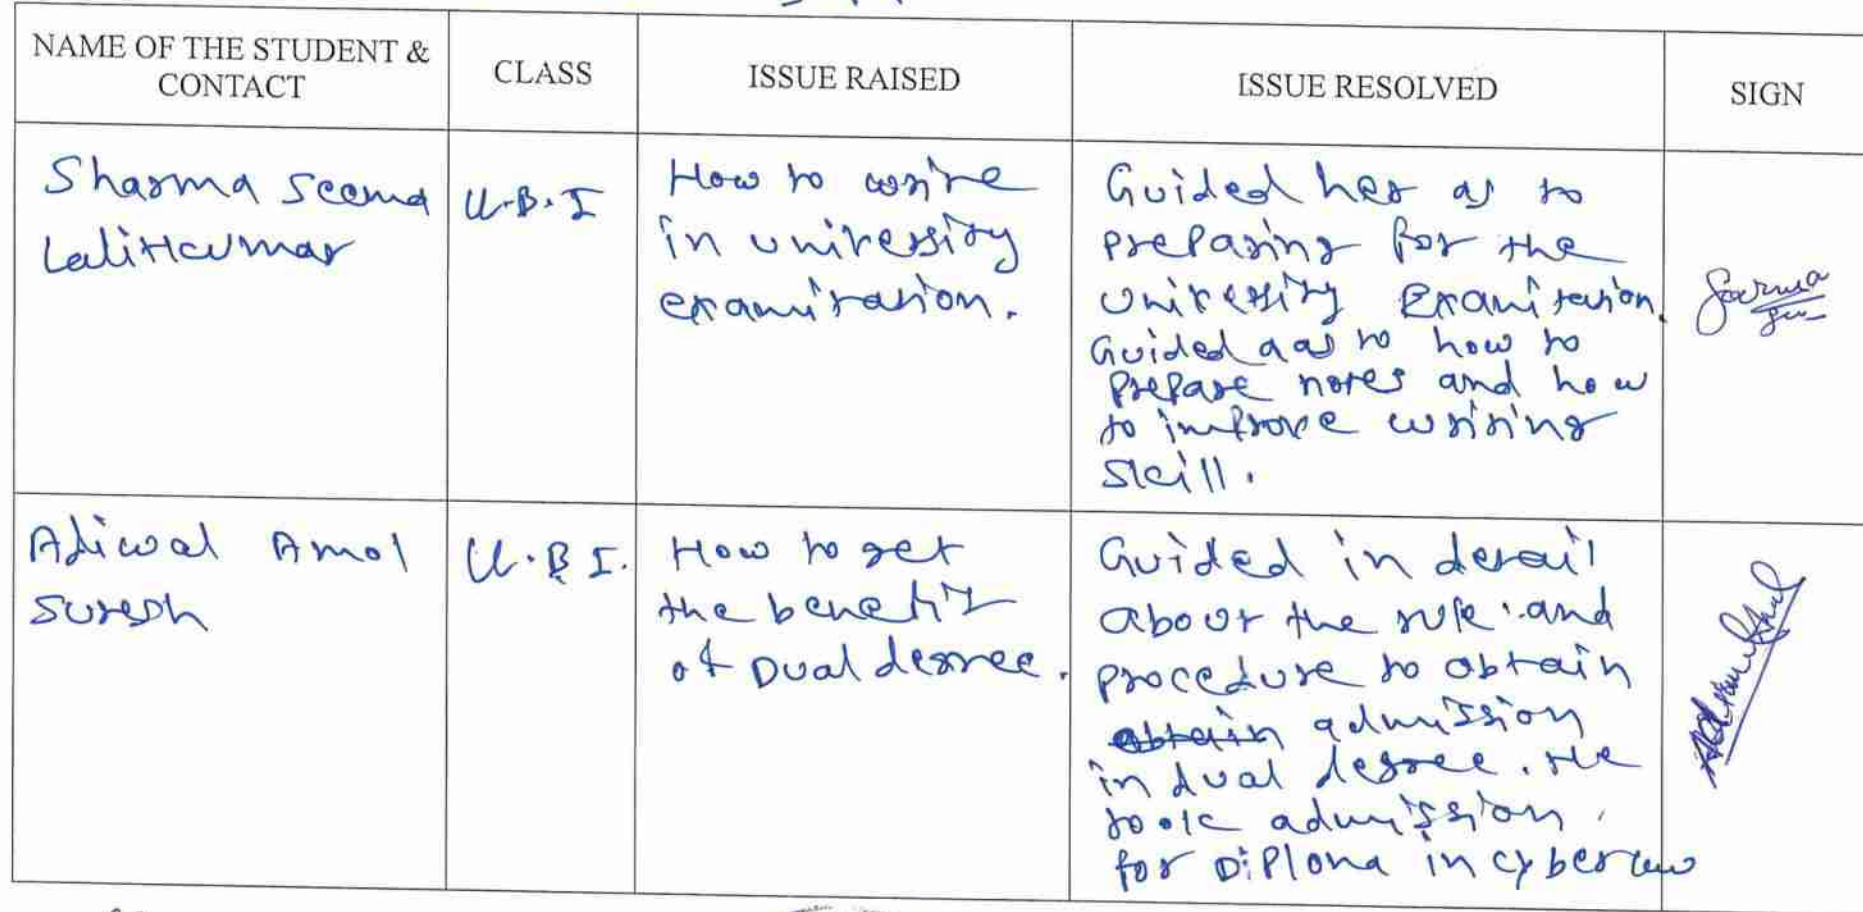 NAME OF THE STUDENT &
CONTACT
CLASS
ISSUE RAISED
ISSUE RESOLVED
SIGN
Sharma Seema
Lalitkumar
LL.B.I
How to write
in university
examination.
Guided her as to
preparing for the
University Examination.
Guided aas to how to
prepare notes and how
to improve writing
skill.
Adiwal Amol
Suresh
LL.B I.
How to get
the benefit
of Dual degree.
Guided in detail
about the rule and
procedure to obtain
obtain admission
in dual degree. He
took admission
for Diploma in cyber law